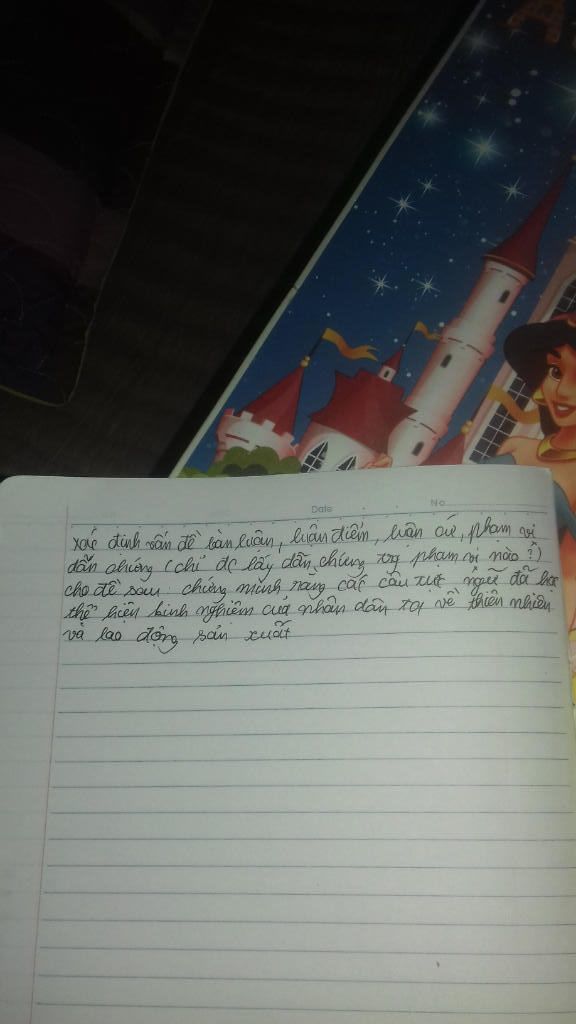 Date No.
xác định vấn đề bàn luận, luận điểm, luận cứ, phạm vi
dẫn chứng (chỉ đc lấy dẫn chứng trg phạm vi nào?)
cho đề sau: chứng minh rằng các câu tục ngữ đã học
thể hiện kinh nghiệm của nhân dân ta về thiên nhiên
và lao động sản xuất